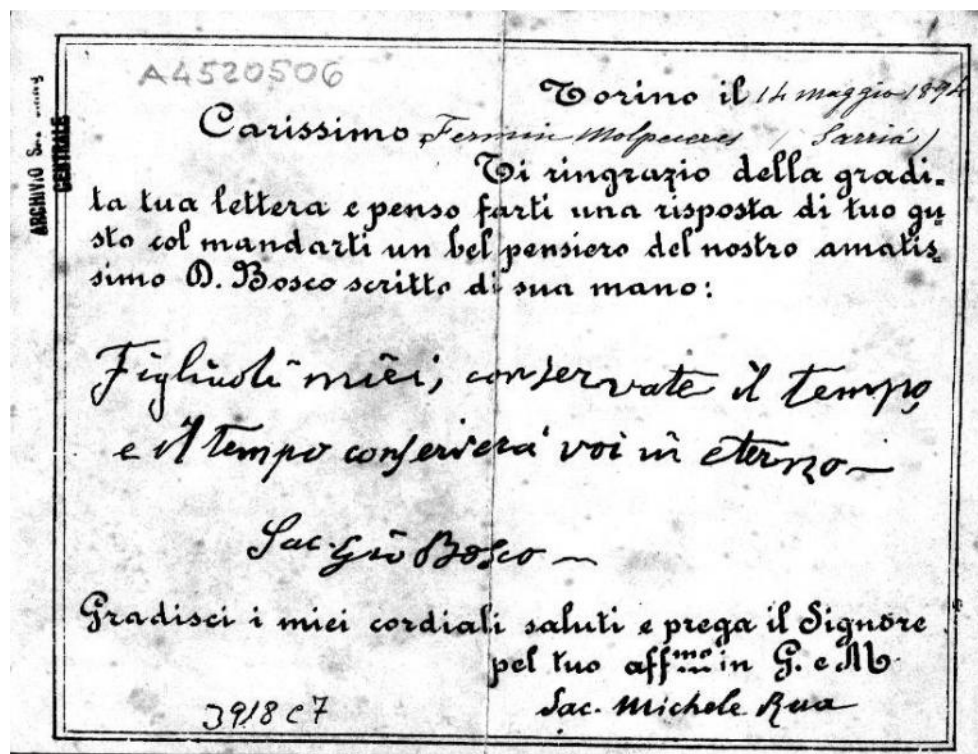 A4520506
Torino il 14 maggio 1894
Carissimo Fermin Molpeceres (Sarriá)
Ti ringrazio della gradi-
ta tua lettera e penso farti una risposta di tuo gu
sto col mandarti un bel pensiero del nostro amatis-
simo D. Bosco scritto di sua mano:
Figliuoli miei, conservate il tempo,
e il tempo conserverà voi in eterno —
Sac. Gio Bosco —
Gradisci i miei cordiali saluti e prega il Signore
pel tuo aff.mo in G. e M.
Sac. Michele Rua
3918 C7
ARCHIVIO
CENTRALE